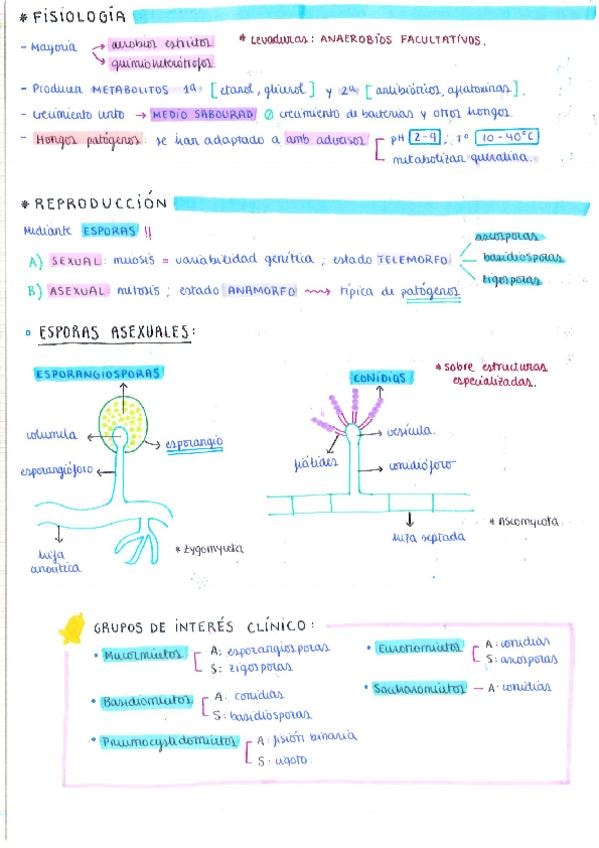 * FISIOLOGÍA
- Mayoría → aerobios estrictos
→ quimioheterótrofos
* Levaduras: ANAEROBIOS FACULTATIVOS.
- Producen METABOLITOS 1ª [etanol, glicerol] y 2ª [antibióticos, aflatoxinas].
- crecimiento lento → MEDIO SABOURAD ∅ crecimiento de bacterias y otros hongos.
- Hongos patógenos: se han adaptado a amb adversos [ pH 2-9; Tº 10-40ºC
metabolizan queratina.
* REPRODUCCIÓN
Mediante ESPORAS !!
A) SEXUAL: meiosis = variabilidad genética; estado TELEMORFO
ascosporas
basidiosporas
zigosporas
B) ASEXUAL: mitosis; estado ANAMORFO ⟿ típica de patógenos
▫ ESPORAS ASEXUALES:
ESPORANGIOSPORAS
columela
esporangio
esporangióforo
hifa
cenocítica
* Zygomycota
CONIDIAS
* sobre estructuras
especializadas.
vesícula.
fiálides
conidióforo
* Ascomycota.
hifa septada
GRUPOS DE INTERÉS CLÍNICO:
• Mucormicetos [ A: esporangiosporas
S: zigosporas
• Basidiomicetos [ A: conidias
S: basidiosporas
• Pneumocystidomicetos [ A: fisión binaria
S: cigoto.
• Euromicetos [ A: conidias
S: ascosporas
• Saccharomicetos - A: conidias